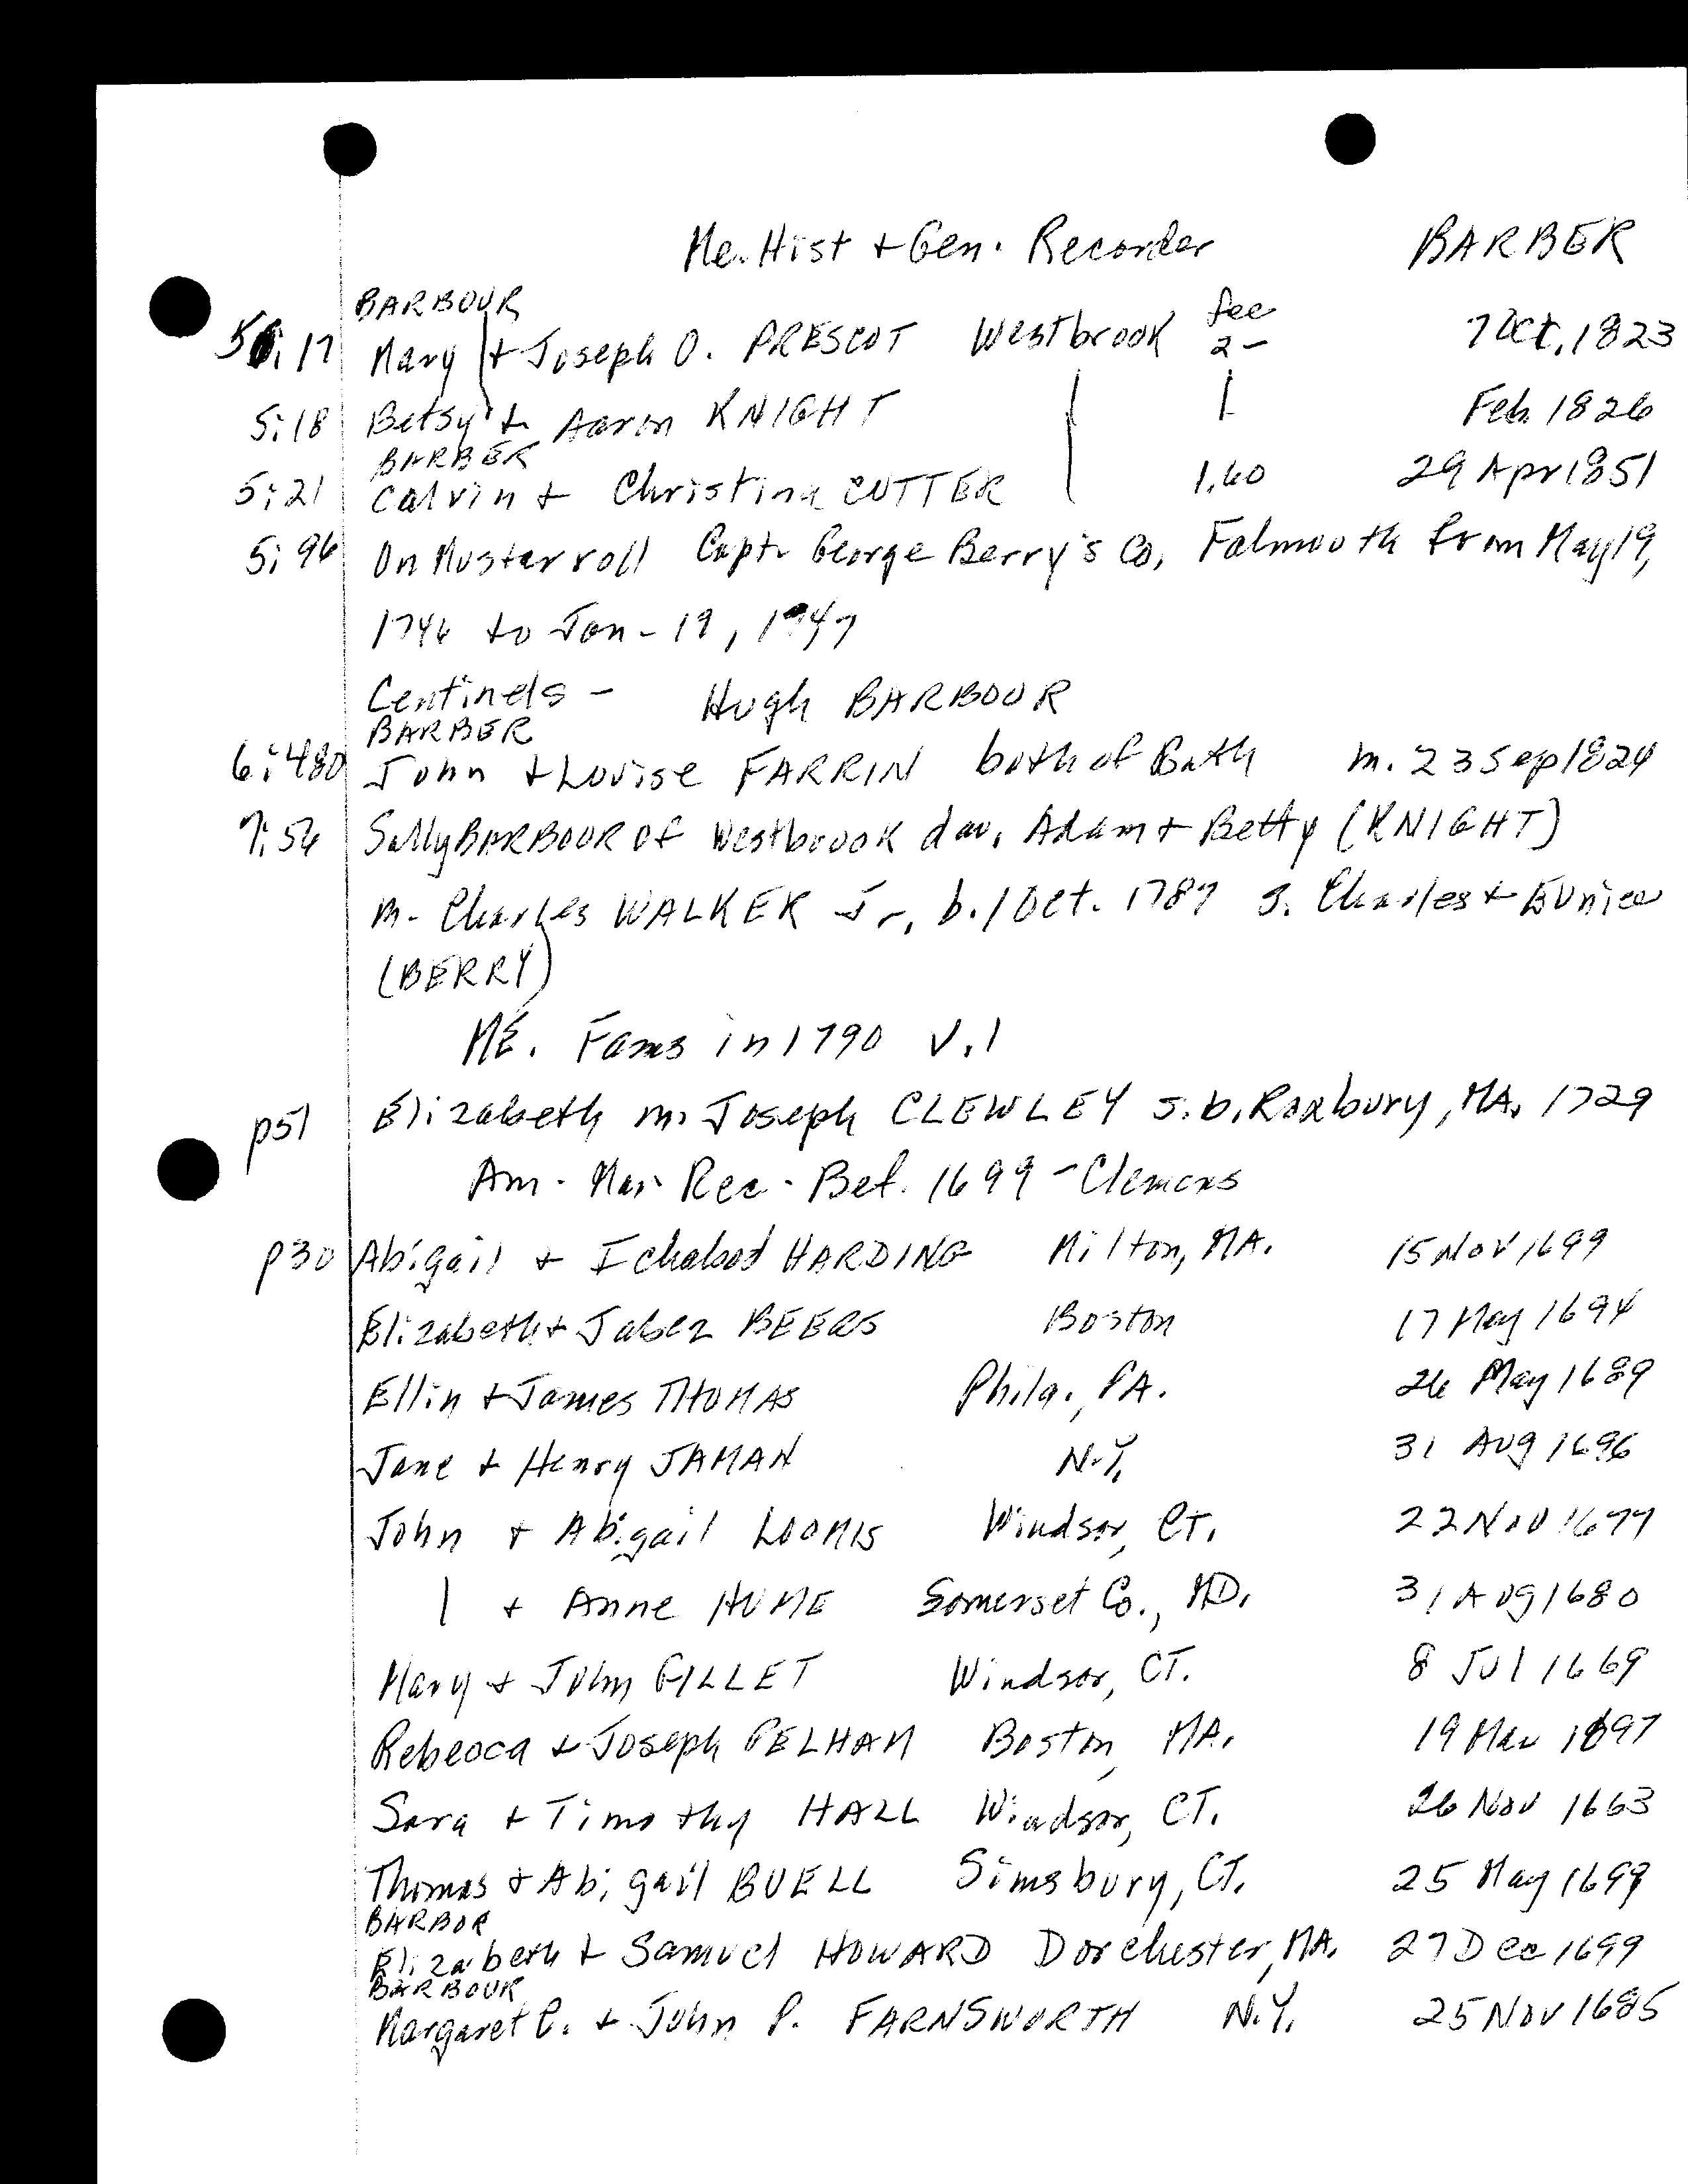 Me. Hist + Gen. Recorder BARBER
BARBOUR fee
5:17 Mary + Joseph O. PRESCOT Westbrook 2- 7 Oct, 1823
5:18 Betsy + Aaron KNIGHT | 1- Feb 1826
BARBER
5:21 Calvin + Christina CUTTER | 1.60 29 Apr 1851
5:96 On Muster roll Capt. George Berry's Co, Falmouth from May 19,
1746 to Jan-19, 1747
Centinels - Hugh BARBOUR
BARBER
6:480 John + Lovise FARRIN both of Bath m. 23 Sep 1824
7:56 Sally BARBOUR of Westbrook dau. Adam + Betty (KNIGHT)
m- Charles WALKER Jr, b. 1 Oct. 1787 s. Charles + Eunice
(BERRY)
ME. Fams in 1790 v.1
p51 Elizabeth m. Joseph CLEWLEY s. b. Roxbury, MA. 1729
Am. Mar. Rec. Bef. 1699 - Clemens
p30 Abigail + Ichabod HARDING Milton, MA. 15 Nov 1699
Elizabeth + Jabez BEERS Boston 17 May 1694
Ellin + James THOMAS Phila., PA. 26 May 1689
Jane + Henry JAMAN N.Y. 31 Aug 1696
John + Abigail LOOMIS Windsor, CT. 22 Nov 1677
| + Anne HUME Somerset Co., MD. 31 Aug 1680
Mary + John GILLET Windsor, CT. 8 Jul 1669
Rebecca + Joseph PELHAM Boston, MA. 19 Mar 1697
Sara + Timothy HALL Windsor, CT. 26 Nov 1663
Thomas + Abigail BUELL Simsbury, CT. 25 May 1699
BARBOR
Elizabeth + Samuel HOWARD Dorchester, MA. 27 Dec 1699
BARBOUR
Margaret C. + John P. FARNSWORTH N.Y. 25 Nov 1685